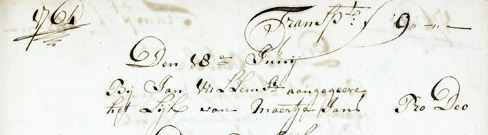 1761 Transpt. f 9,,-,,-
Den 18e Junij
Bij Jan Willemse aangegeeve
het Lijk van Maertje Jans Pro Deo